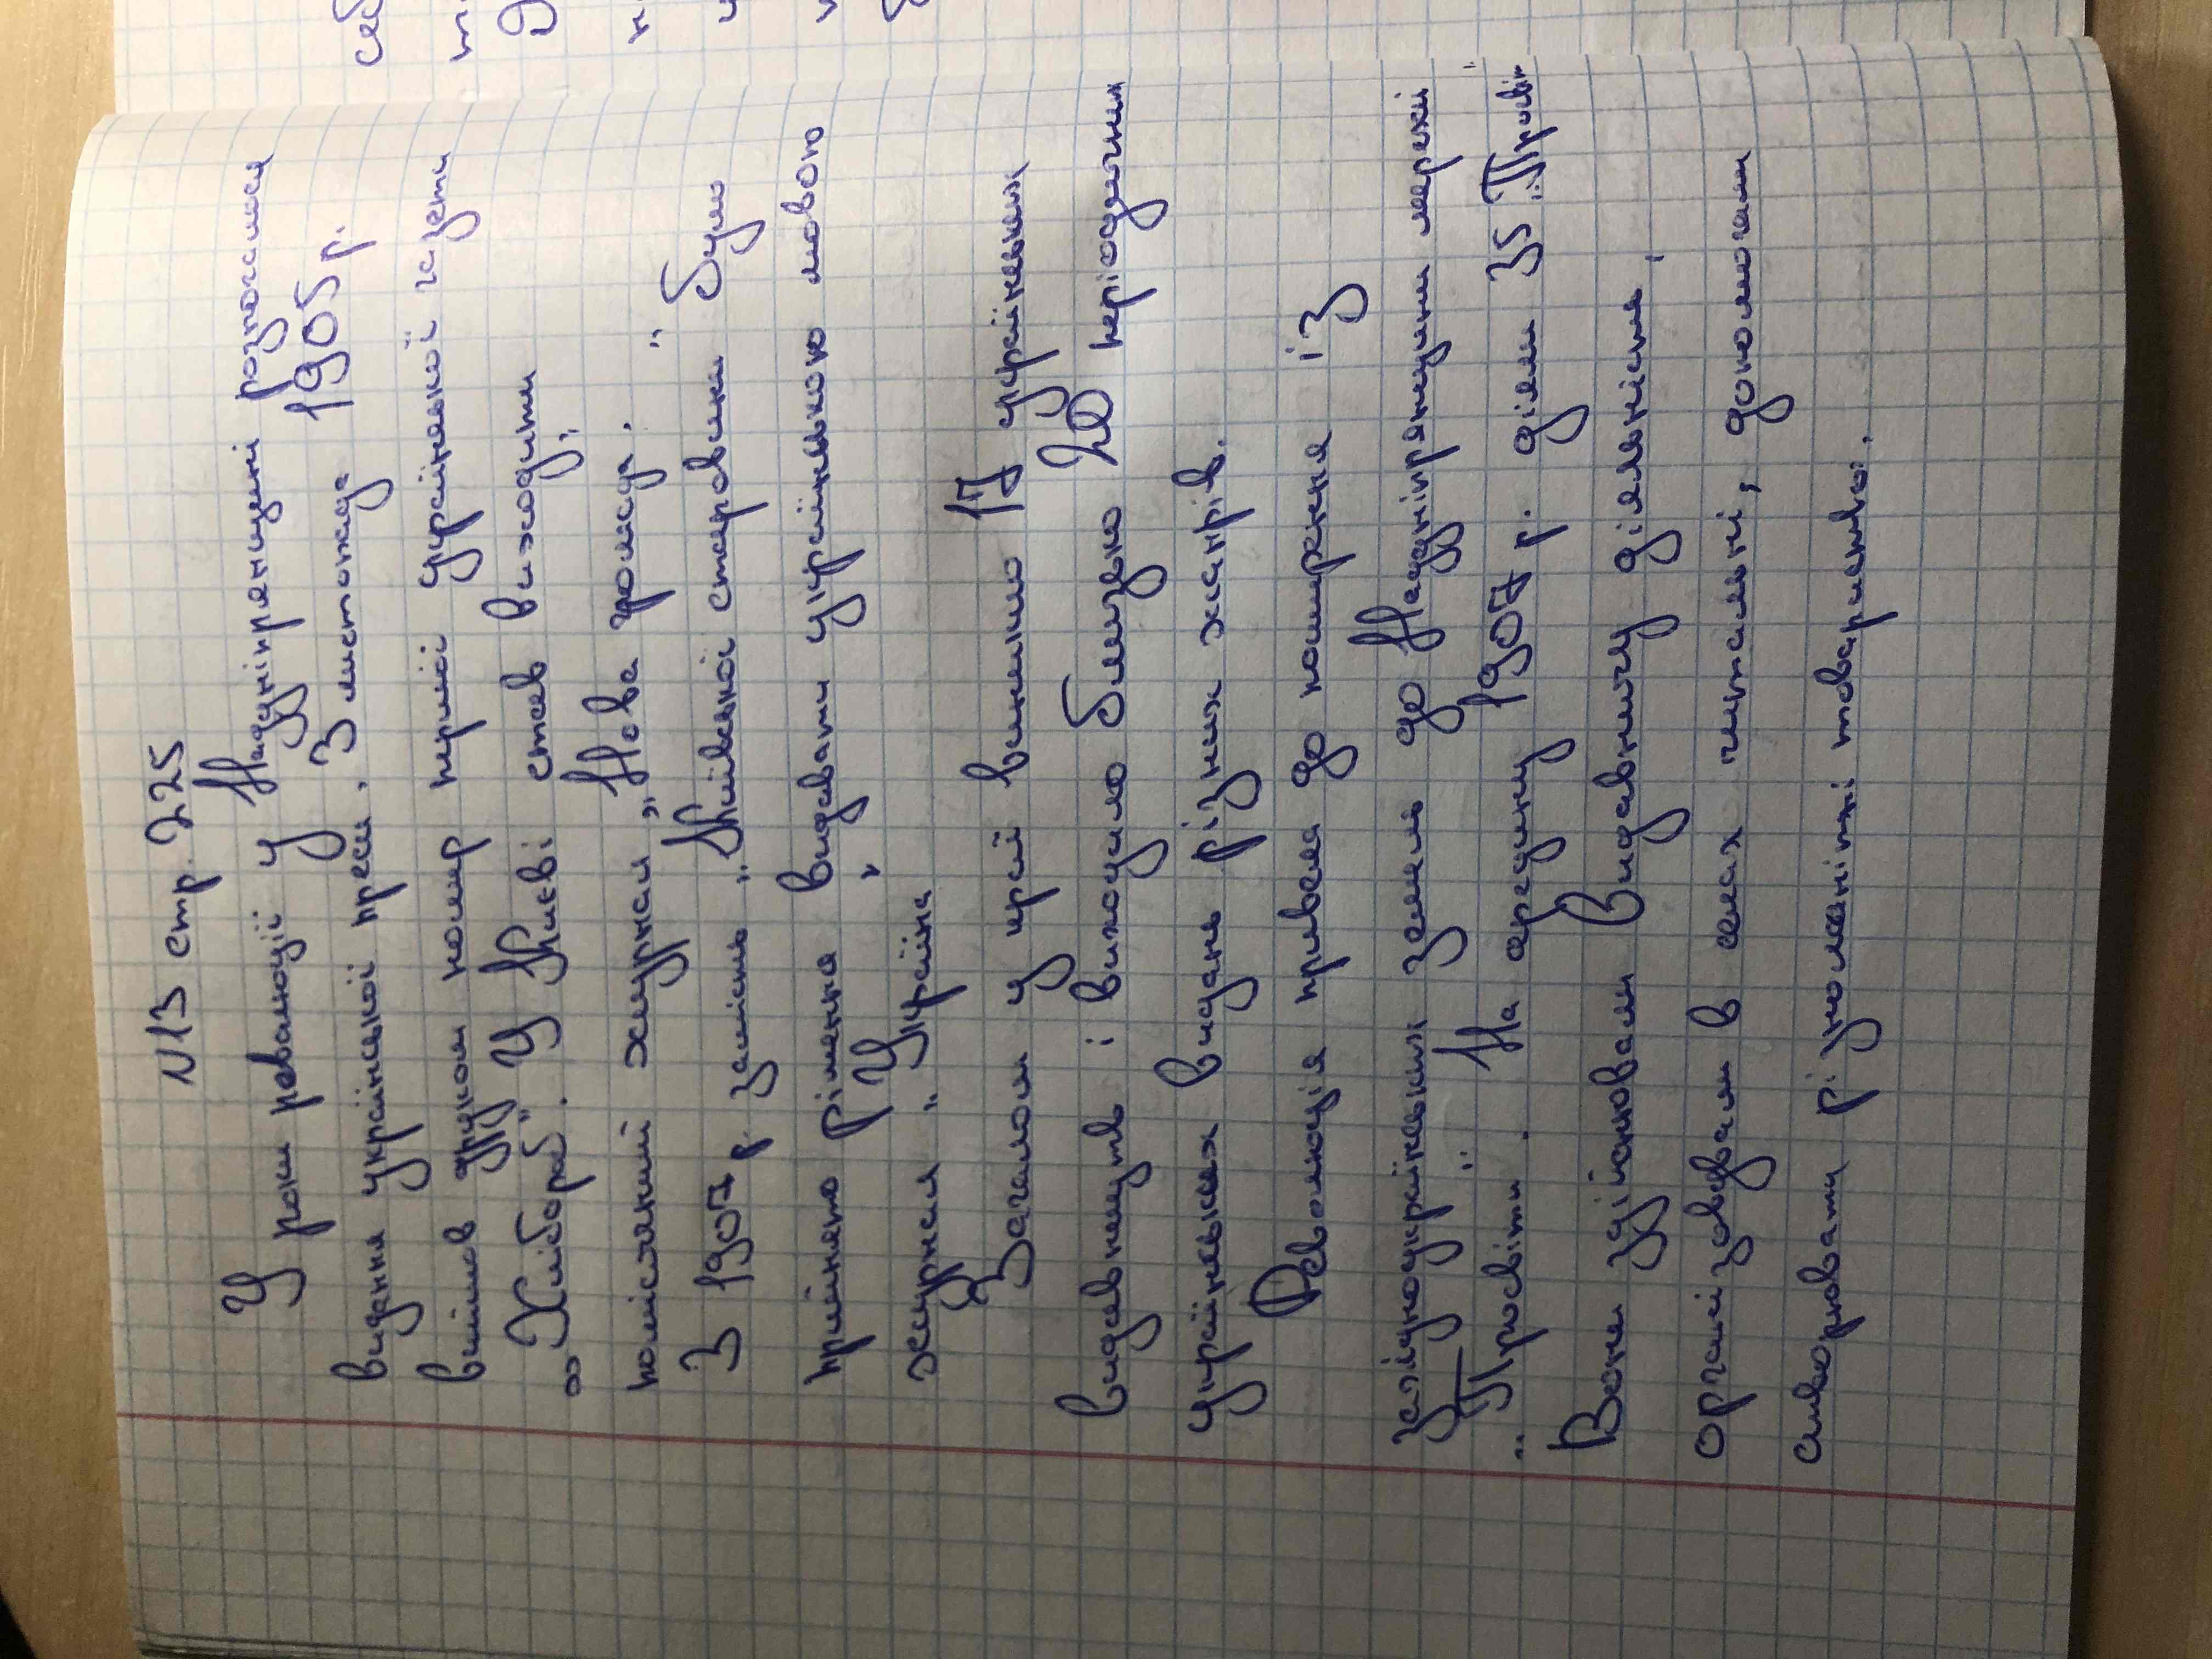 N13 стр. 225
У роки революції у Наддніпрянщині розпочалося
видання української преси. З листопада 1905 р.
вийшов друком номер першої української газети
„Хлібороб". У Києві став виходити
помісячний журнал „Нова громада."
З 1907 р. замість „Київської старовини" було
прийнято рішення видавати українською мовою
журнал „Україна"
Загалом у краї виникло 17 українських
видавництв і виходило близько 20 періодичних
українських видань різних жанрів.
Революція привела до поширення із
західноукраїнських земель до Наддніпрянщини мережі
„Просвіти". На середину 1907 р. діяли 35 „Просвіт"
Вони здійснювали видавничу діяльність,
організовували в селах читальні, допомагали
створювати різноманітні товариства.